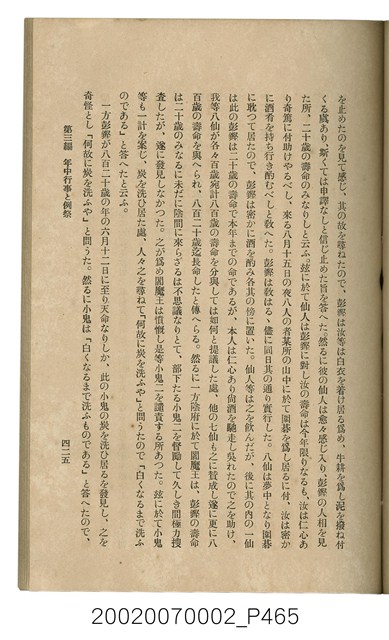 を止めたのを見て感じ、其の故を尋ねたので、彭鏗は汝等は白衣を着け居る爲め、牛耕を爲し泥を撥ね付
くる虞あり、斯くては申譯なしと信じ止めた旨を答へた。然るに彼の仙人は愈々感じ入り、彭鏗の人相を見
た所、二十歳の壽命のみなりしと云ふ。玆に於て仙人は彭鏗に對し汝の壽命は今年限りなるも、汝は仁心あ
り奇篤に付助けやるべし、來る八月十五日の夜八人の者某所の山中に於て圍碁を爲し居るに付、汝は密か
に酒肴を持ち行き酌むべしと敎へた。彭鏗は敎はるゝ儘に同日其の通り實行した。八仙は夢中となり圍碁
に耽つて居たので、彭鏗は密かに酒を酌み各其の傍に置いた。仙人等は之を飮んだが、後に其の内の一仙
は此の彭鏗は二十歳の壽命で本年までの命であるが、本人は仁心あり尙酒を馳走し吳れたので之を助け、
我等八仙が各々百歳宛計八百歳の壽命を分與しては如何と提議した處、他の七仙も之に賛成し遂に更に八
百歳の壽命を與へられ、八百二十歳迄長命したと傳へらる。然るに一方陰府に於て閻魔王は、彭鏗の壽命
は二十歳のみなるに未だに陰間に來らざるは不思議なりとて、部下たる小鬼二を督勵して久しき間極力捜
査したが、遂に發見しなかつた。之が爲め閻魔王は憤慨し是等小鬼二を譴責する所あつた。玆に於て小鬼
等も一計を案じ、炭を洗ひ居た處、人々之を尋ねて「何故に炭を洗ふや」と問うたので「白くなるまで洗ふ
のである」と答へたと云ふ。
一方彭鏗が八百二十歳の年の六月十二日に至り天命なりしか、此の小鬼の炭を洗ひ居るを發見し、之を
奇怪とし「何故に炭を洗ふや」と問うた。然るに小鬼は「白くなるまで洗ふものである」と答へたので、
第三編 年中行事と例祭
四二五
20020070002_P465